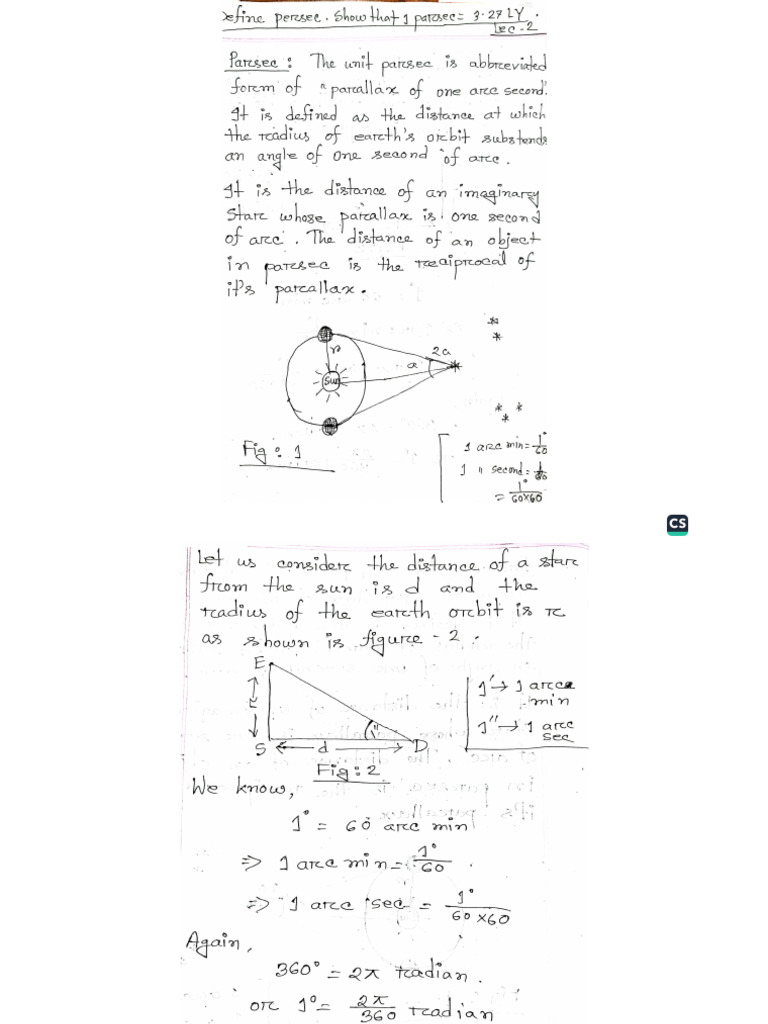 efine percsec. Show that 1 parcsec = 3.27 LY.
Lec-2
Parcsec : The unit parcsec is abbreviated
form of "parcallax of one arcc second".
It is defined as the distance at which
the rcadius of earcth's orcbit substends
an angle of one second of arcc.
It is the distance of an imaginarcy
starc whose parcallax is one second
of arcc. The distance of an object
in parcsec is the rceciprcocal of
it's parcallax.
2a
a
r
Sun
Fig : 1
1 arcc min = 1°/60
1 " second = 1/60
= 1°/60×60
CS
Let us considerc the distance of a starc
frcom the sun is d and the
rcadius of the earcth orcbit is rc
as shown is figurce - 2.
E
r
S
d
1"
D
1' → 1 arcc
min
1'' → 1 arcc
sec
Fig : 2
We know,
1° = 60 arcc min
⇒ 1 arcc min = 1°/60
⇒ 1 arcc sec = 1°/60×60
Again,
360° = 2π rcadian.
orc 1° = 2π/360 rcadian